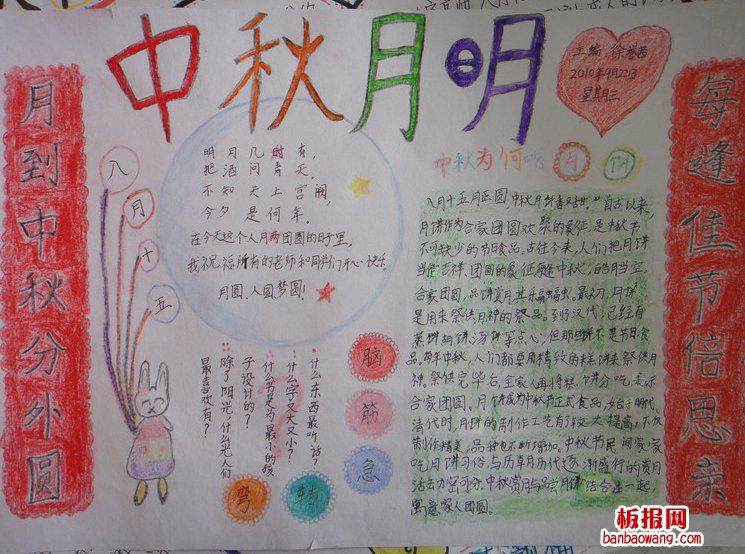 中秋月明
主编 徐
2010年9月22日
星期三
月到中秋分外圆
八月十五
明月几时有，
把酒问青天。
不知天上宫阙，
今夕是何年。
在今天这个人月两团圆的日子里，
我祝福所有的老师和同学们开心快乐。
月圆、人圆梦圆！
中秋为何吃月饼
八月十五月正圆，中秋月饼香又甜。"自古以来，
月饼作为合家团圆欢聚的象征，是中秋节
不可缺少的节日食品。古往今来，人们把月饼
当作吉祥、团圆的象征。每逢中秋，皓月当空，
合家团圆，品饼赏月，其乐融融。最初，月饼
是用来祭供月神的祭品。到汉代，已经有
蒸饼胡饼汤饼等点心，但那些饼不是节日食
品，每年中秋，人们都要用精致的样饼来祭供月
神。祭供完毕后，全家人再将饼分吃，表示
合家团圆。月饼成为中秋节正式食品，始于明代。
清代时，月饼的制作工艺有了较大提高，不仅
制作精美，品种也不断增加。中秋节民间家家
吃月饼习俗与历朝历代逐渐盛行的赏月
活动密切分，中秋赏月与品尝月饼结合在一起，
寓意家人团圆。
每逢佳节倍思亲
脑筋急转弯
什么东西最听话？
什么字又大又小？
什么书是为最小的孩
子设计的？
除了阳光，什么光人们
最喜欢看？
板报网
banbaowang.com